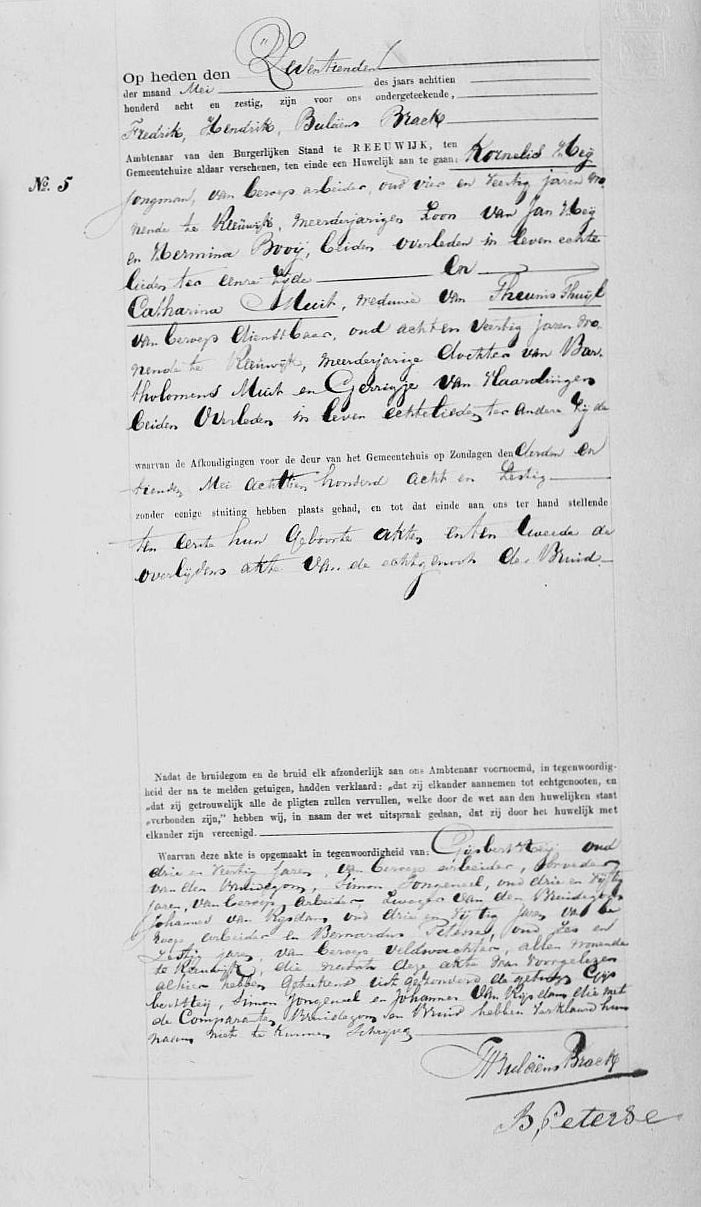 Op heden den Zeventienden
der maand Mei des jaars achttien
honderd acht en zestig, zijn voor ons ondergeteekende,
Fredrik, Hendrik, Buläens Brack
Ambtenaar van den Burgerlijken Stand te REEUWIJK, ten
Gemeentehuize aldaar verschenen, ten einde een Huwelijk aan te gaan: Kornelis Heij
No. 5
Jongman, van beroep arbeider, oud vier en veertig jaren wo
nende te Reeuwijk, meerderjarigen Zoon van Jan Heij
en Hermina Booij, beiden overleden in leven echte
lieden ter eenre zijde En
Catharina Muit, weduwe van Theunis Thuijl
van beroep dienstbaar, oud acht en veertig jaren wo
nende te Reeuwijk, meerderjarige dochter van Bar
tholomeus Muit en Gerrigje van Vlaardingen
beiden Overleden in leven echtelieden ter andere zijde
waarvan de Afkondigingen voor de deur van het Gemeentehuis op Zondagen den derden en
tienden Mei achttien honderd acht en Zestig
zonder eenige stuiting hebben plaats gehad, en tot dat einde aan ons ter hand stellende
ten eerste hun Geboorte akten en ten tweede de
overlijdens akte van de echtgenoot der Bruid
Nadat de bruidegom en de bruid elk afzonderlijk aan ons Ambtenaar voornoemd, in tegenwoordig-
heid der na te melden getuigen, hadden verklaard: „dat zij elkander aannemen tot echtgenooten, en
„dat zij getrouwelijk alle de pligten zullen vervullen, welke door de wet aan den huwelijken staat
„verbonden zijn,” hebben wij, in naam der wet uitspraak gedaan, dat zij door het huwelijk met
elkander zijn vereenigd.
Waarvan deze akte is opgemaakt in tegenwoordigheid van: Gijsbert Heij oud
drie en veertig jaren, van beroep arbeider, broeder
van den Bruidegom, Simon Jongeneel, oud drie en vijftig
jaren, van beroep arbeider, Zwager van den Bruidegom
Johannes van Rijsdam oud drie en vijftig jaren van be
roep arbeider en Bernardus Peterse, oud Zes en
Zestig jaren, van beroep veldwachter, allen wonende
te Reeuwijk, die nadat deze akte was voorgelezen
alhier hebben getekend uitgezonderd de getuigen Gijs
bert Heij, Simon Jongeneel en Johannes van Rijsdam die met
de Comparanten Bruidegom en Bruid hebben verklaard hun
naam niet te kunnen schrijven
FHBuläens Brack
B, Peterse